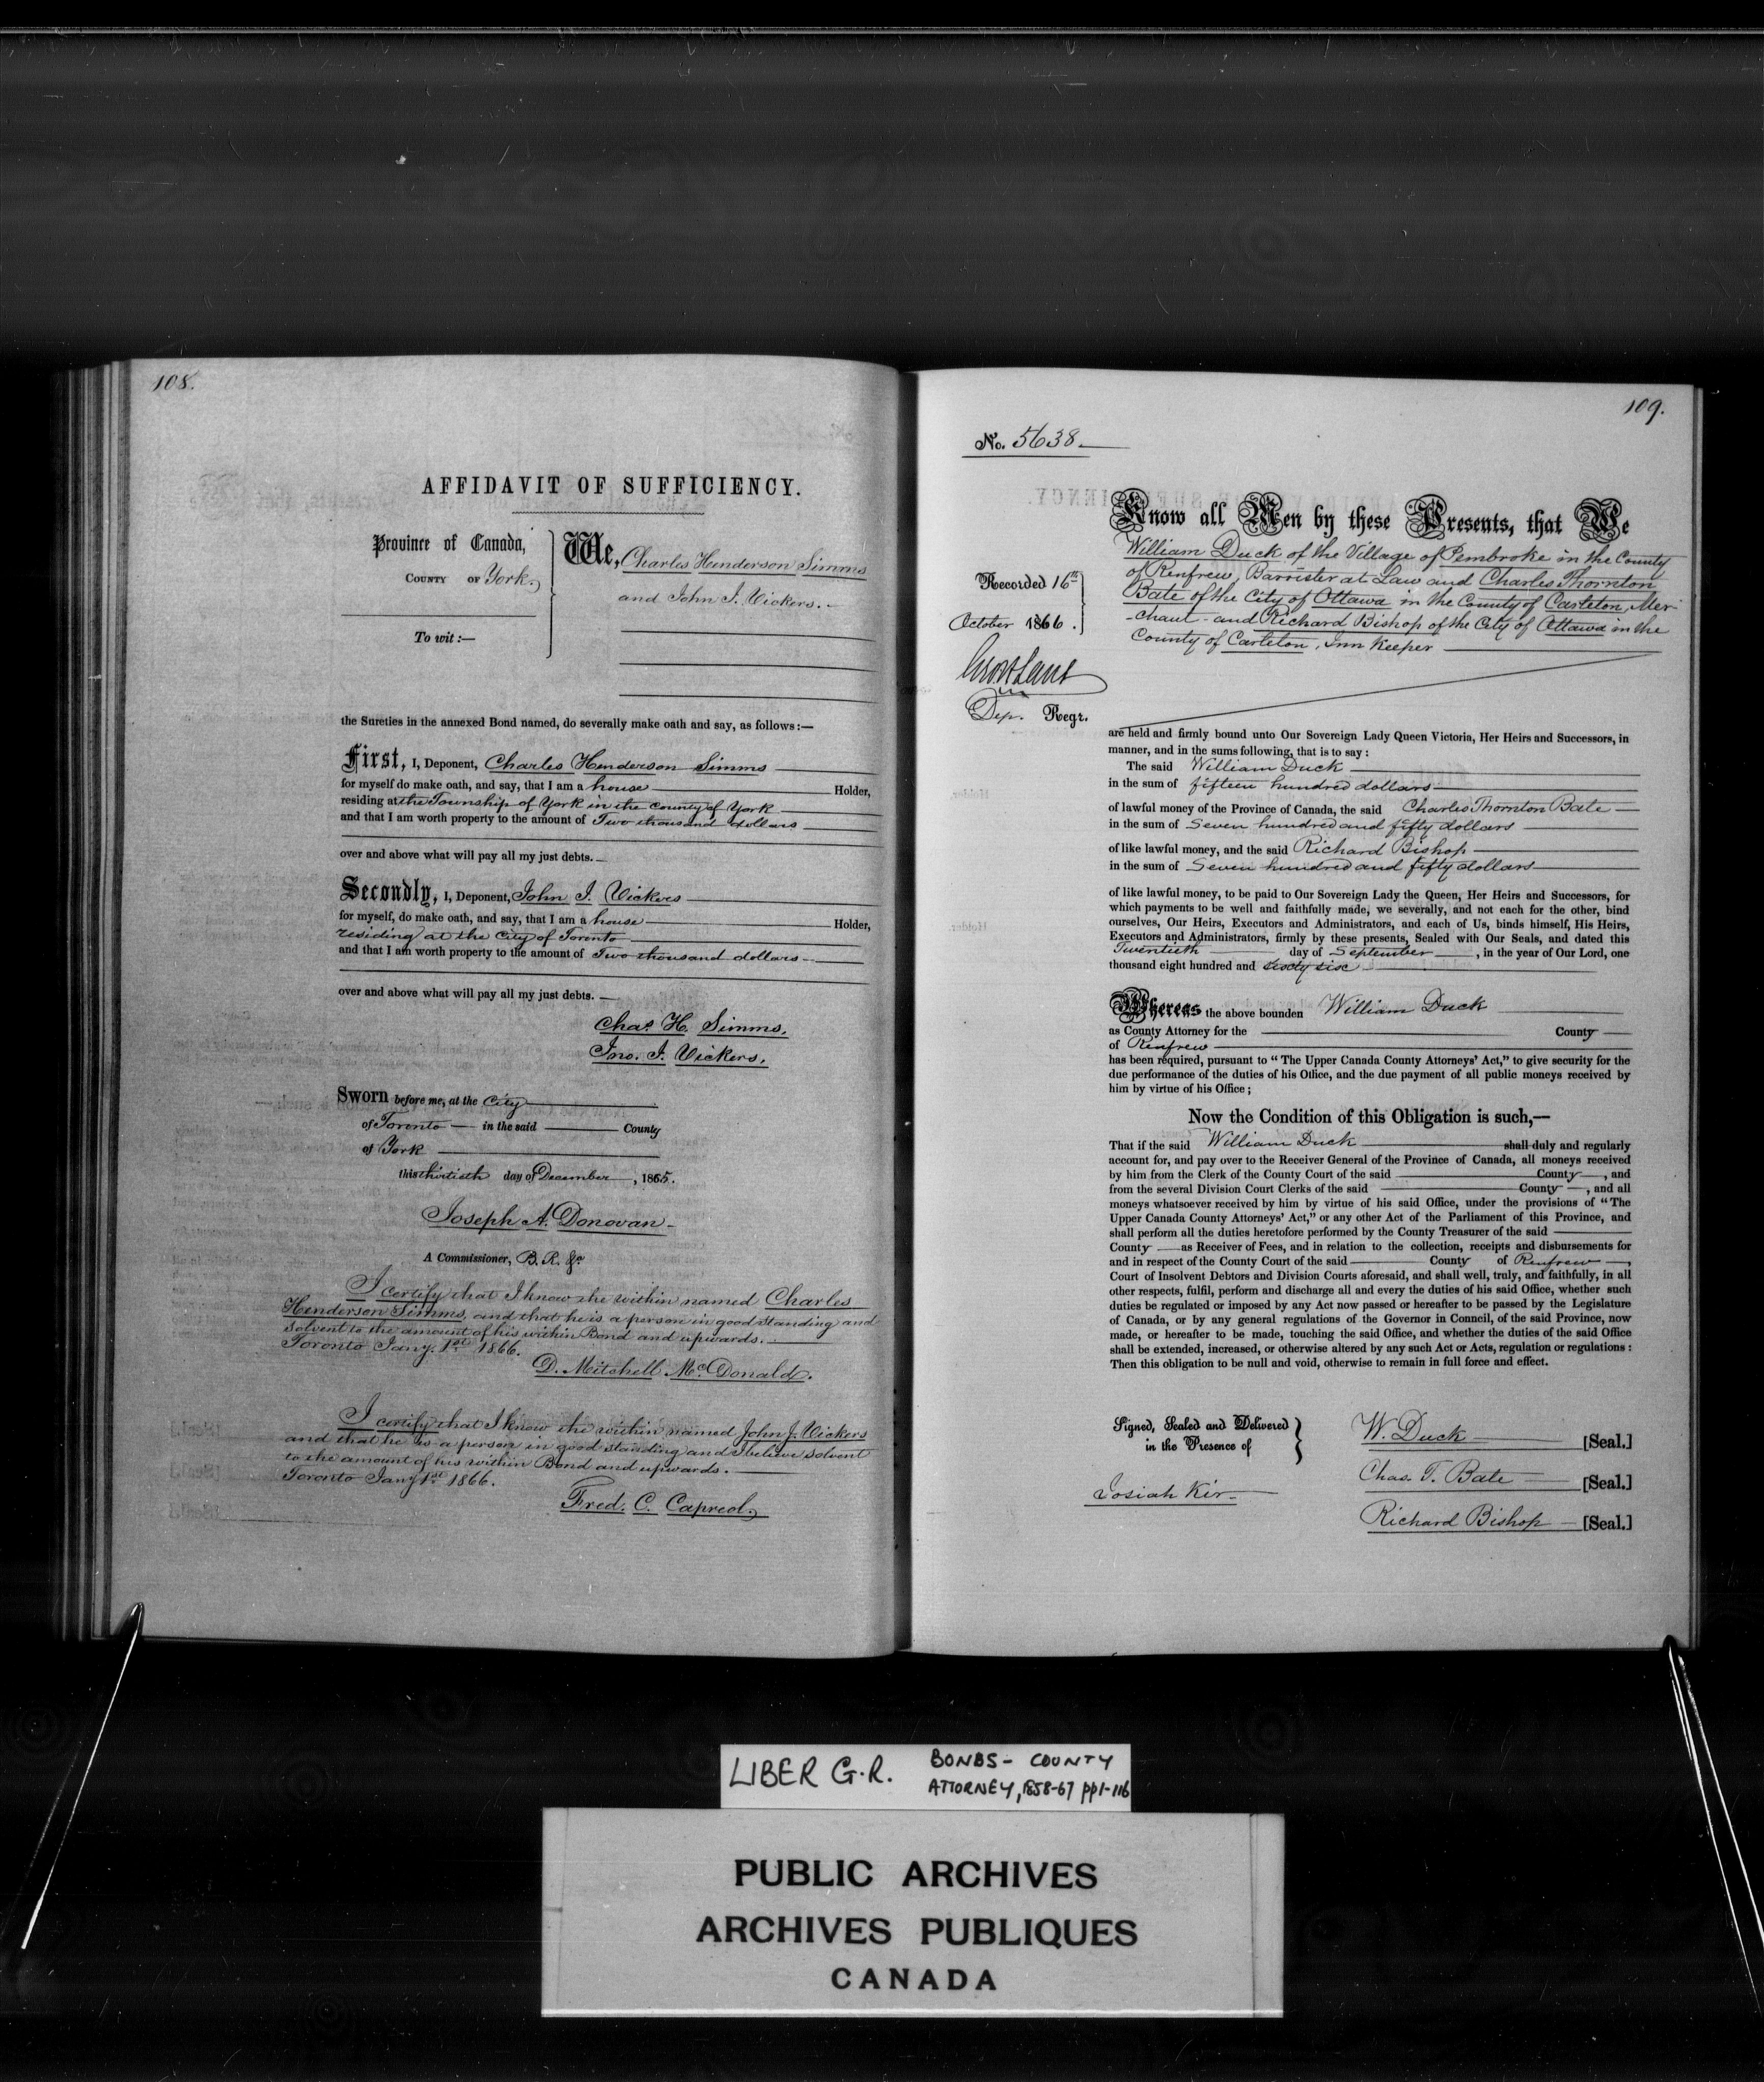 108.
AFFIDAVIT OF SUFFICIENCY.
Province of Canada,
COUNTY OF York.
To wit:—
We, Charles Henderson Simms
and John J. Vickers.
the Sureties in the annexed Bond named, do severally make oath and say, as follows:—
First, I, Deponent, Charles Henderson Simms
for myself do make oath, and say, that I am a house Holder,
residing at the Township of York in the County of York
and that I am worth property to the amount of Two thousand dollars
over and above what will pay all my just debts.
Secondly, I, Deponent, John J. Vickers
for myself, do make oath, and say, that I am a house Holder,
residing at the City of Toronto
and that I am worth property to the amount of Two thousand dollars
over and above what will pay all my just debts.
Chas. H. Simms.
Jno. J. Vickers.
Sworn before me, at the City
of Toronto in the said County
of York
this thirtieth day of December, 1865.
Joseph A. Donovan
A Commissioner, B. R. &c
I certify that I know the within named Charles
Henderson Simms, and that he is a person in good standing and
solvent to the amount of his within Bond and upwards.
Toronto Jany. 1st 1866.
D. Mitchell McDonald.
I certify that I know the within named John J. Vickers
and that he is a person in good standing and I believe solvent
to the amount of his within Bond and upwards.
Toronto Jany 1st 1866.
Fred. C. Capreol.
109.
No. 5638
Recorded 16th
October 1866.
Dep. Regr.
Know all Men by these Presents, that We
William Duck of the Village of Pembroke in the County
of Renfrew, Barrister at Law and Charles Thornton
Bate of the City of Ottawa in the County of Carleton, Mer-
-chant - and Richard Bishop of the City of Ottawa in the
County of Carleton, Inn Keeper
are held and firmly bound unto Our Sovereign Lady Queen Victoria, Her Heirs and Successors, in
manner, and in the sums following, that is to say:
The said William Duck
in the sum of fifteen hundred dollars
of lawful money of the Province of Canada, the said Charles Thornton Bate
in the sum of Seven hundred and fifty dollars
of like lawful money, and the said Richard Bishop
in the sum of Seven hundred and fifty dollars
of like lawful money, to be paid to Our Sovereign Lady the Queen, Her Heirs and Successors, for
which payments to be well and faithfully made, we severally, and not each for the other, bind
ourselves, Our Heirs, Executors and Administrators, and each of Us, binds himself, His Heirs,
Executors and Administrators, firmly by these presents, Sealed with Our Seals, and dated this
Twentieth day of September, in the year of Our Lord, one
thousand eight hundred and sixty six
Whereas the above bounden William Duck
as County Attorney for the County
of Renfrew
has been required, pursuant to "The Upper Canada County Attorneys' Act," to give security for the
due performance of the duties of his Office, and the due payment of all public moneys received by
him by virtue of his Office;
Now the Condition of this Obligation is such,—
That if the said William Duck shall duly and regularly
account for, and pay over to the Receiver General of the Province of Canada, all moneys received
by him from the Clerk of the County Court of the said County, and
from the several Division Court Clerks of the said County, and all
moneys whatsoever received by him by virtue of his said Office, under the provisions of "The
Upper Canada County Attorneys' Act," or any other Act of the Parliament of this Province, and
shall perform all the duties heretofore performed by the County Treasurer of the said
County as Receiver of Fees, and in relation to the collection, receipts and disbursements for
and in respect of the County Court of the said County of Renfrew,
Court of Insolvent Debtors and Division Courts aforesaid, and shall well, truly, and faithfully, in all
other respects, fulfil, perform and discharge all and every the duties of his said Office, whether such
duties be regulated or imposed by any Act now passed or hereafter to be passed by the Legislature
of Canada, or by any general regulations of the Governor in Council, of the said Province, now
made, or hereafter to be made, touching the said Office, and whether the duties of the said Office
shall be extended, increased, or otherwise altered by any such Act or Acts, regulation or regulations:
Then this obligation to be null and void, otherwise to remain in full force and effect.
Signed, Sealed and Delivered
in the Presence of
Josiah Kir
W. Duck [Seal.]
Chas. T. Bate [Seal.]
Richard Bishop [Seal.]
LIBER G.R. BONDS - COUNTY
ATTORNEY, 1858-67 pp1-116
PUBLIC ARCHIVES
ARCHIVES PUBLIQUES
CANADA